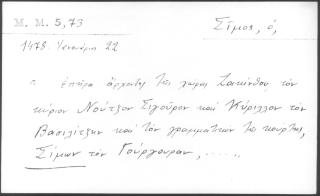 M. M. 5,73
Σῖμος, ὁ,
1478 Ἰανουάρ. 22
ἄρχοντες τῆς χώρας Ζακύνθου τὸν
κύριον Νούτζον Σιγοῦρον καὶ Κύριλλον τὸν
Βασιλίτζην καὶ τὸν γραμματικὸν τῆς κούρτης,
Σίμων τὸν Γούργουραν, .....,